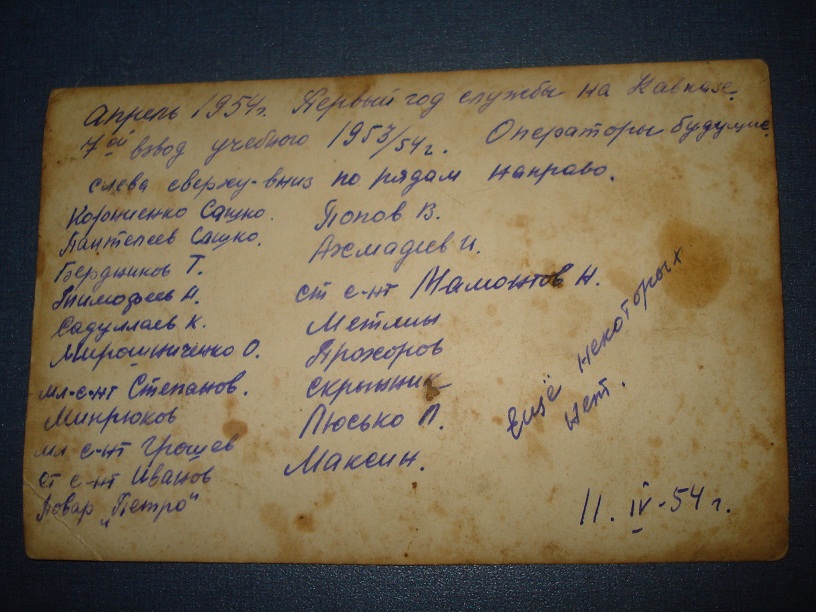 Апрель 1954г. Первый год службы на Кавказе.
7ой взвод учебного 1953/54г. Операторы будущие.
слева сверху-вниз по рядам направо.
Корниенко Сашко.
Пантелеев Сашко.
Бердников Т.
Тимофеев Н.
Садуллаев К.
Мирошниченко О.
мл-с-нт Степанов.
Минрюков
мл с-нт Грошев
ст с-нт Иванов
Повар "Петро"
Попов В.
Ахмадиев И.
ст с-нт Мамонтов Н.
Метлин
Прохоров
Скрынник
Люсько П.
Максин.
Ещё некоторых
нет.
11. IV-54 г.